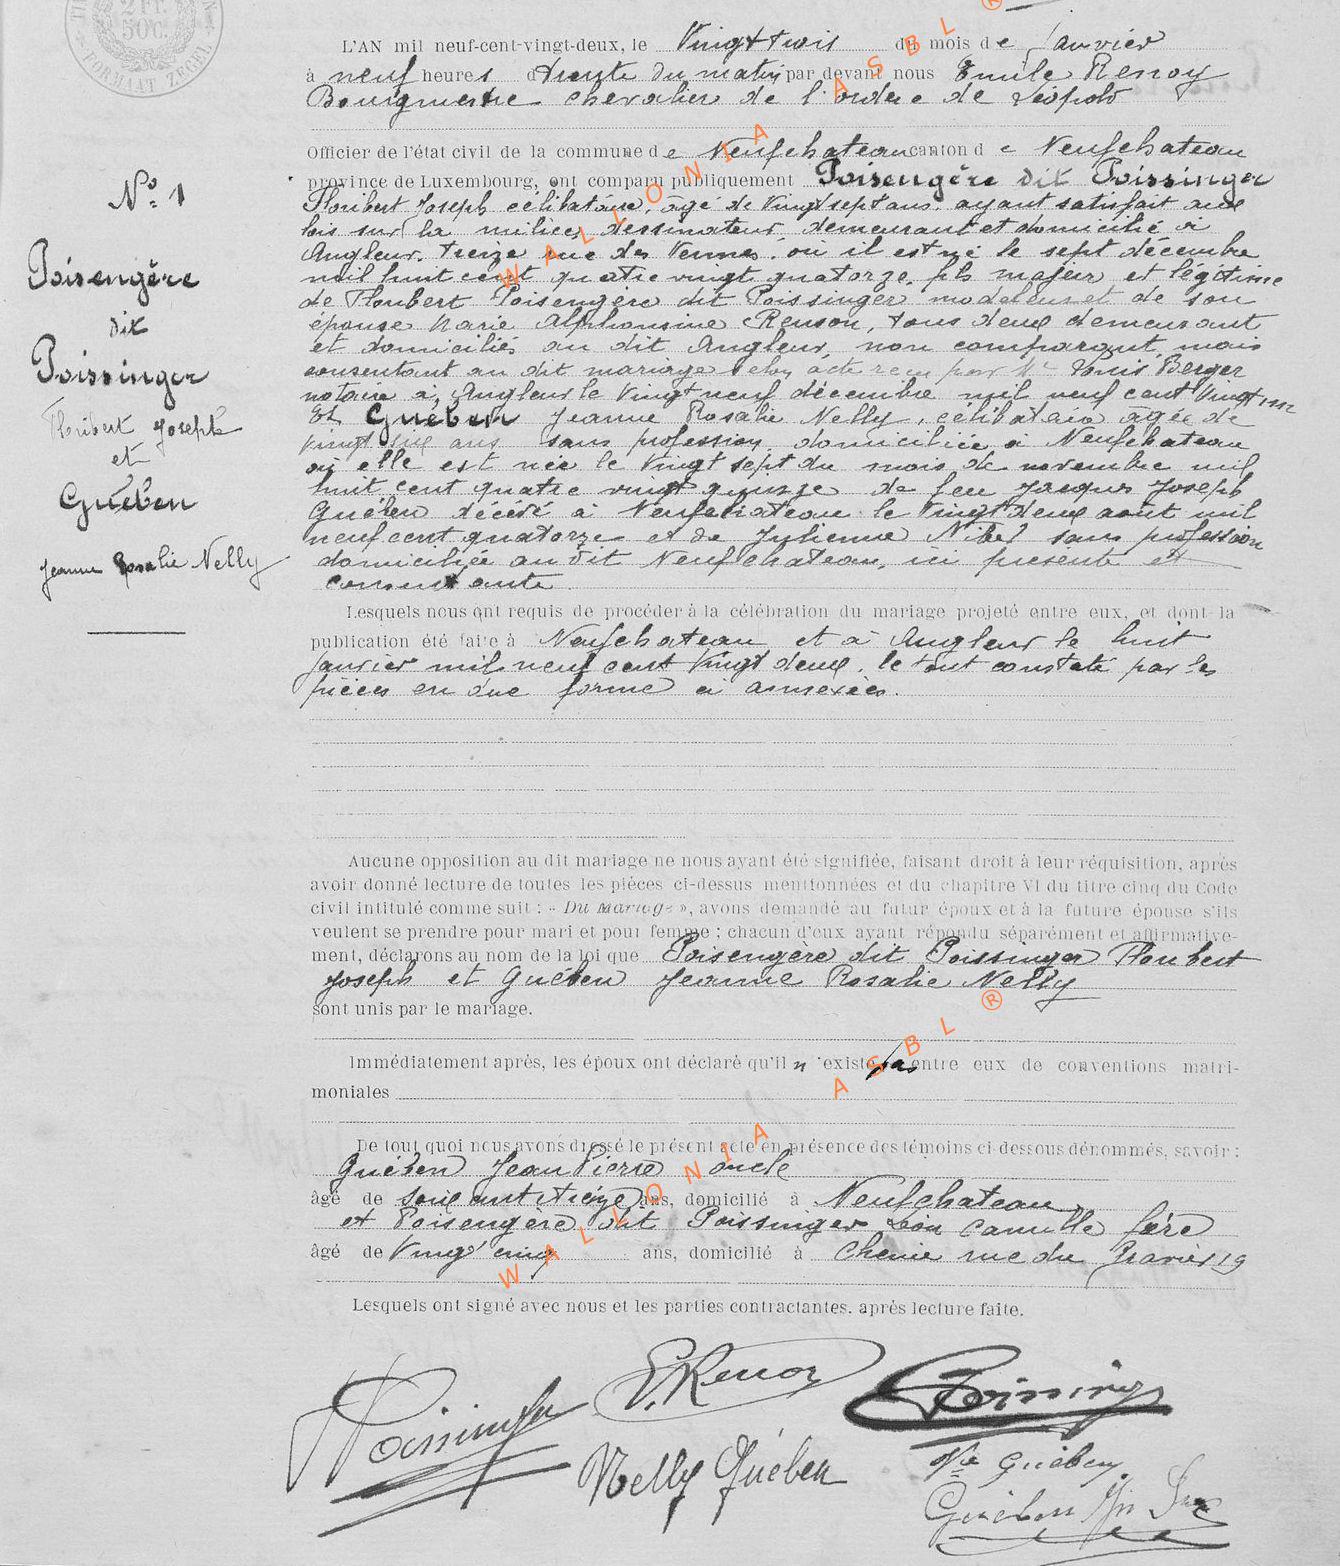 2 FR.
50 C.
FORMAAT ZEGEL
L'AN mil neuf-cent-vingt-deux, le Vingt trois du mois de Janvier
à neuf heures trente du matin par devant nous Emile Renoy
Bourgmestre chevalier de l'ordre de Léopold
Officier de l'état civil de la commune de Neufchateau canton de Neufchateau
province de Luxembourg, ont comparu publiquement Poisengère dit Poissinger
Floribert Joseph célibataire, agé de Vingt sept ans, ayant satisfait aux
lois sur la milice, dessinateur demeurant et domicilié à
Angleur, treize rue des Vennes, où il est né le sept décembre
mil huit cent quatre vingt quatorze, fils majeur et légitime
de Floribert Poisengère dit Poissinger modeleur et de son
épouse Marie Alphonsine Renson, tous deux demeurant
et domiciliés au dit Angleur, non comparant, mais
consentant au dit mariage selon acte reçu par Me Berger
notaire à Angleur le Vingt neuf décembre mil neuf cent Vingt un
Et Guében Jeanne Rosalie Nelly, célibataire agée de
vingt six ans sans profession domiciliée à Neufchateau
où elle est née le Vingt sept du mois de novembre mil
huit cent quatre vingt quinze de feu Jacques Joseph
Guében décédé à Neufchateau le Vingt deux août mil
neuf cent quatorze et de Julienne sans profession
domiciliée au dit Neufchateau, ici présente et
consentante
Lesquels nous ont requis de procéder à la célébration du mariage projeté entre eux, et dont la
publication été faite à Neufchateau et à Angleur le huit
Janvier mil neuf cent Vingt deux, le tout constaté par les
pièces en due forme ci annexées.
Aucune opposition au dit mariage ne nous ayant été signifiée, faisant droit à leur réquisition, après
avoir donné lecture de toutes les pièces ci-dessus mentionnées et du chapitre VI du titre cinq du Code
civil intitulé comme suit : « Du Mariage », avons demandé au futur époux et à la future épouse s'ils
veulent se prendre pour mari et pour femme ; chacun d'eux ayant répondu séparément et affirmative-
ment, déclarons au nom de la loi que Poisengère dit Poissinger Floribert
Joseph et Guében Jeanne Rosalie Nelly
sont unis par le mariage.
Immédiatement après, les époux ont déclaré qu'il n'existe pas entre eux de conventions matri-
moniales
De tout quoi nous avons dressé le présent acte en présence des témoins ci-dessous dénommés, savoir :
Guében Jean Pierre oncle
âgé de soixante treize ans, domicilié à Neufchateau
et Poisengère dit Poissinger Léon Camille frère
âgé de Vingt cinq ans, domicilié à Chenée rue du Gravier 19
Lesquels ont signé avec nous et les parties contractantes, après lecture faite.
E. Renoy
Nelly Guében
Vve Guében
Guében
No 1
Poisengère
dit
Poissinger
Floribert Joseph
et
Guében
Jeanne Rosalie Nelly
WALLONIA ASBL ®
WALLONIA ASBL ®